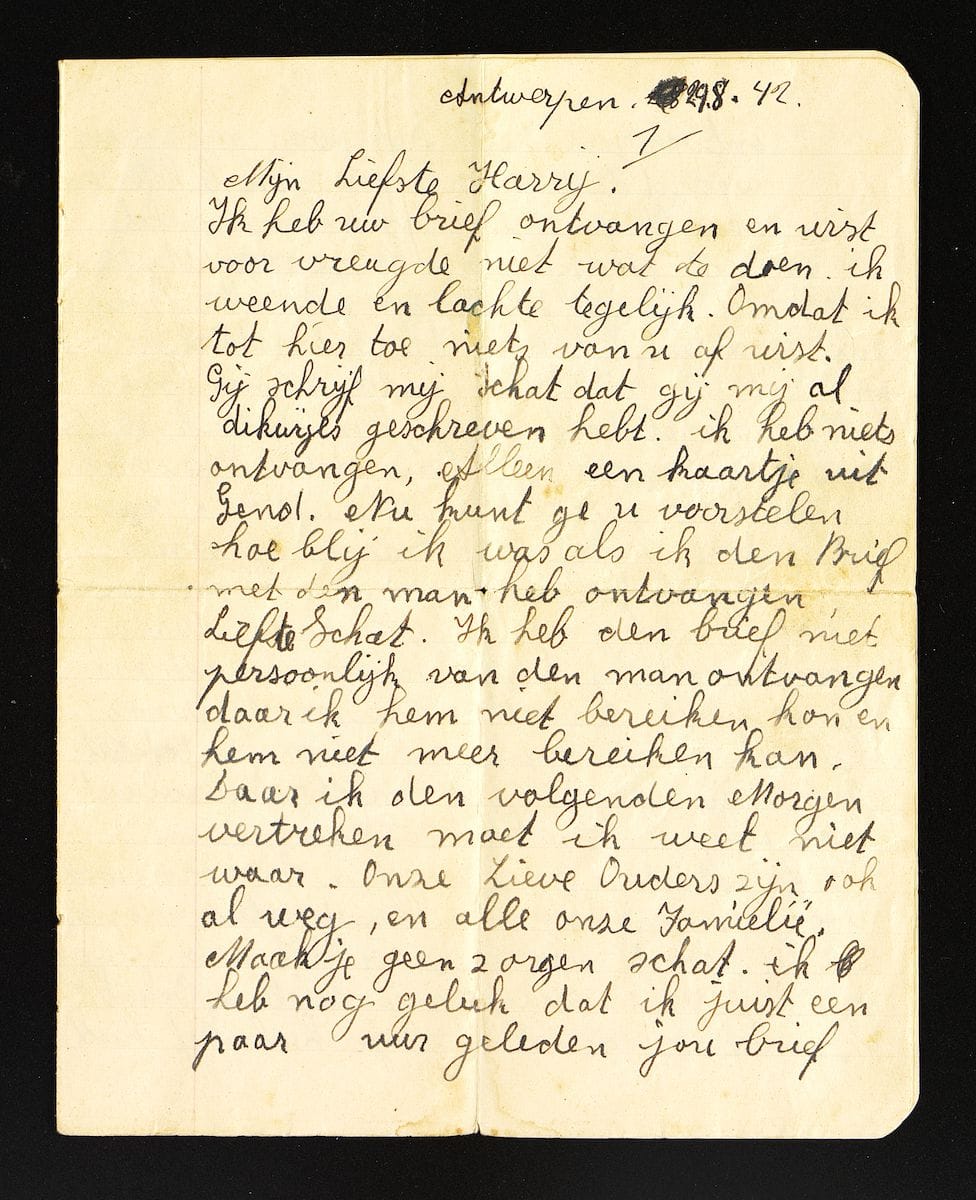 Antwerpen. 29.8. 42.
1/
Mijn Liefste Harrij.
Ik heb uw brief ontvangen en wist
voor vreugde niet wat te doen. ik
weende en lachte tegelijk. Omdat ik
tot hier toe niets van u af wist.
Gij schrijf mij schat dat gij mij al
dikwijls geschreven hebt. ik heb niets
ontvangen, Alleen een kaartje uit
Gend. Nu kunt ge u voorstelen
hoe blij ik was als ik den Brief
met den man heb ontvangen
Liefste Schat. Ik heb den brief niet
persoonlijk van den man ontvangen
daar ik hem niet bereiken kon en
hem niet meer bereiken kan.
Daar ik den volgenden Morgen
vertreken moet ik weet niet
waar. Onze Lieve Ouders zijn ook
al weg, en alle onze Famielië.
Maak je geen zorgen schat. ik
heb nog geluk dat ik juist een
paar uur geleden jou brief